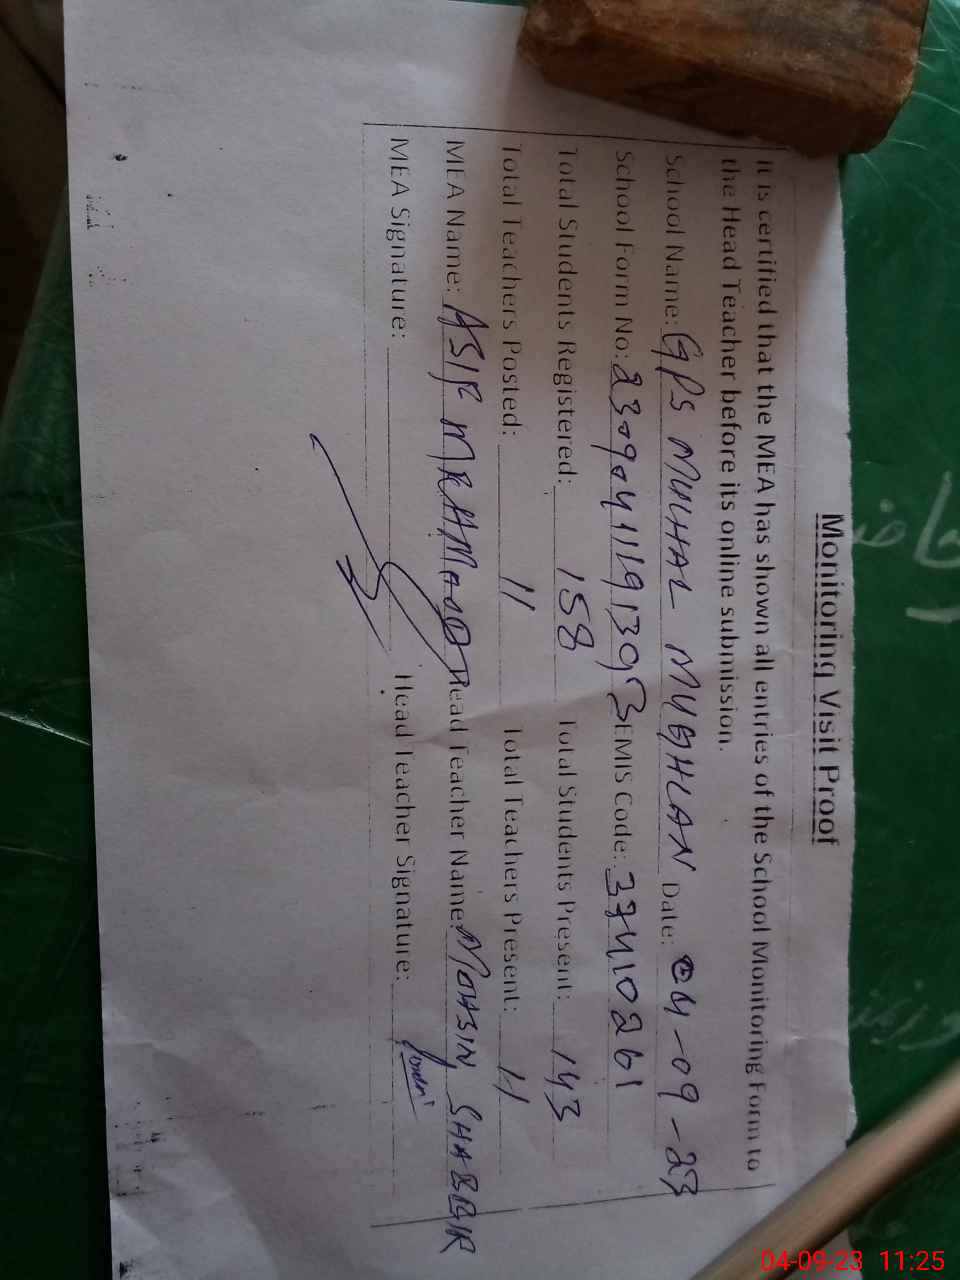 Monitoring Visit Proof
It is certified that the MEA has shown all entries of the School Monitoring Form to
the Head Teacher before its online submission.
School Name: GPS MULHAL MUGHLAN Date: 04-09-23
School Form No: 23090411191393 EMIS Code: 37410261
Total Students Registered: 158 Total Students Present: 143
Total Teachers Posted: 11 Total Teachers Present: 11
MEA Name: ASIF MEHMOOD Head Teacher Name: MOHSIN SHABBIR
MEA Signature: Head Teacher Signature:
04-09-23 11:25